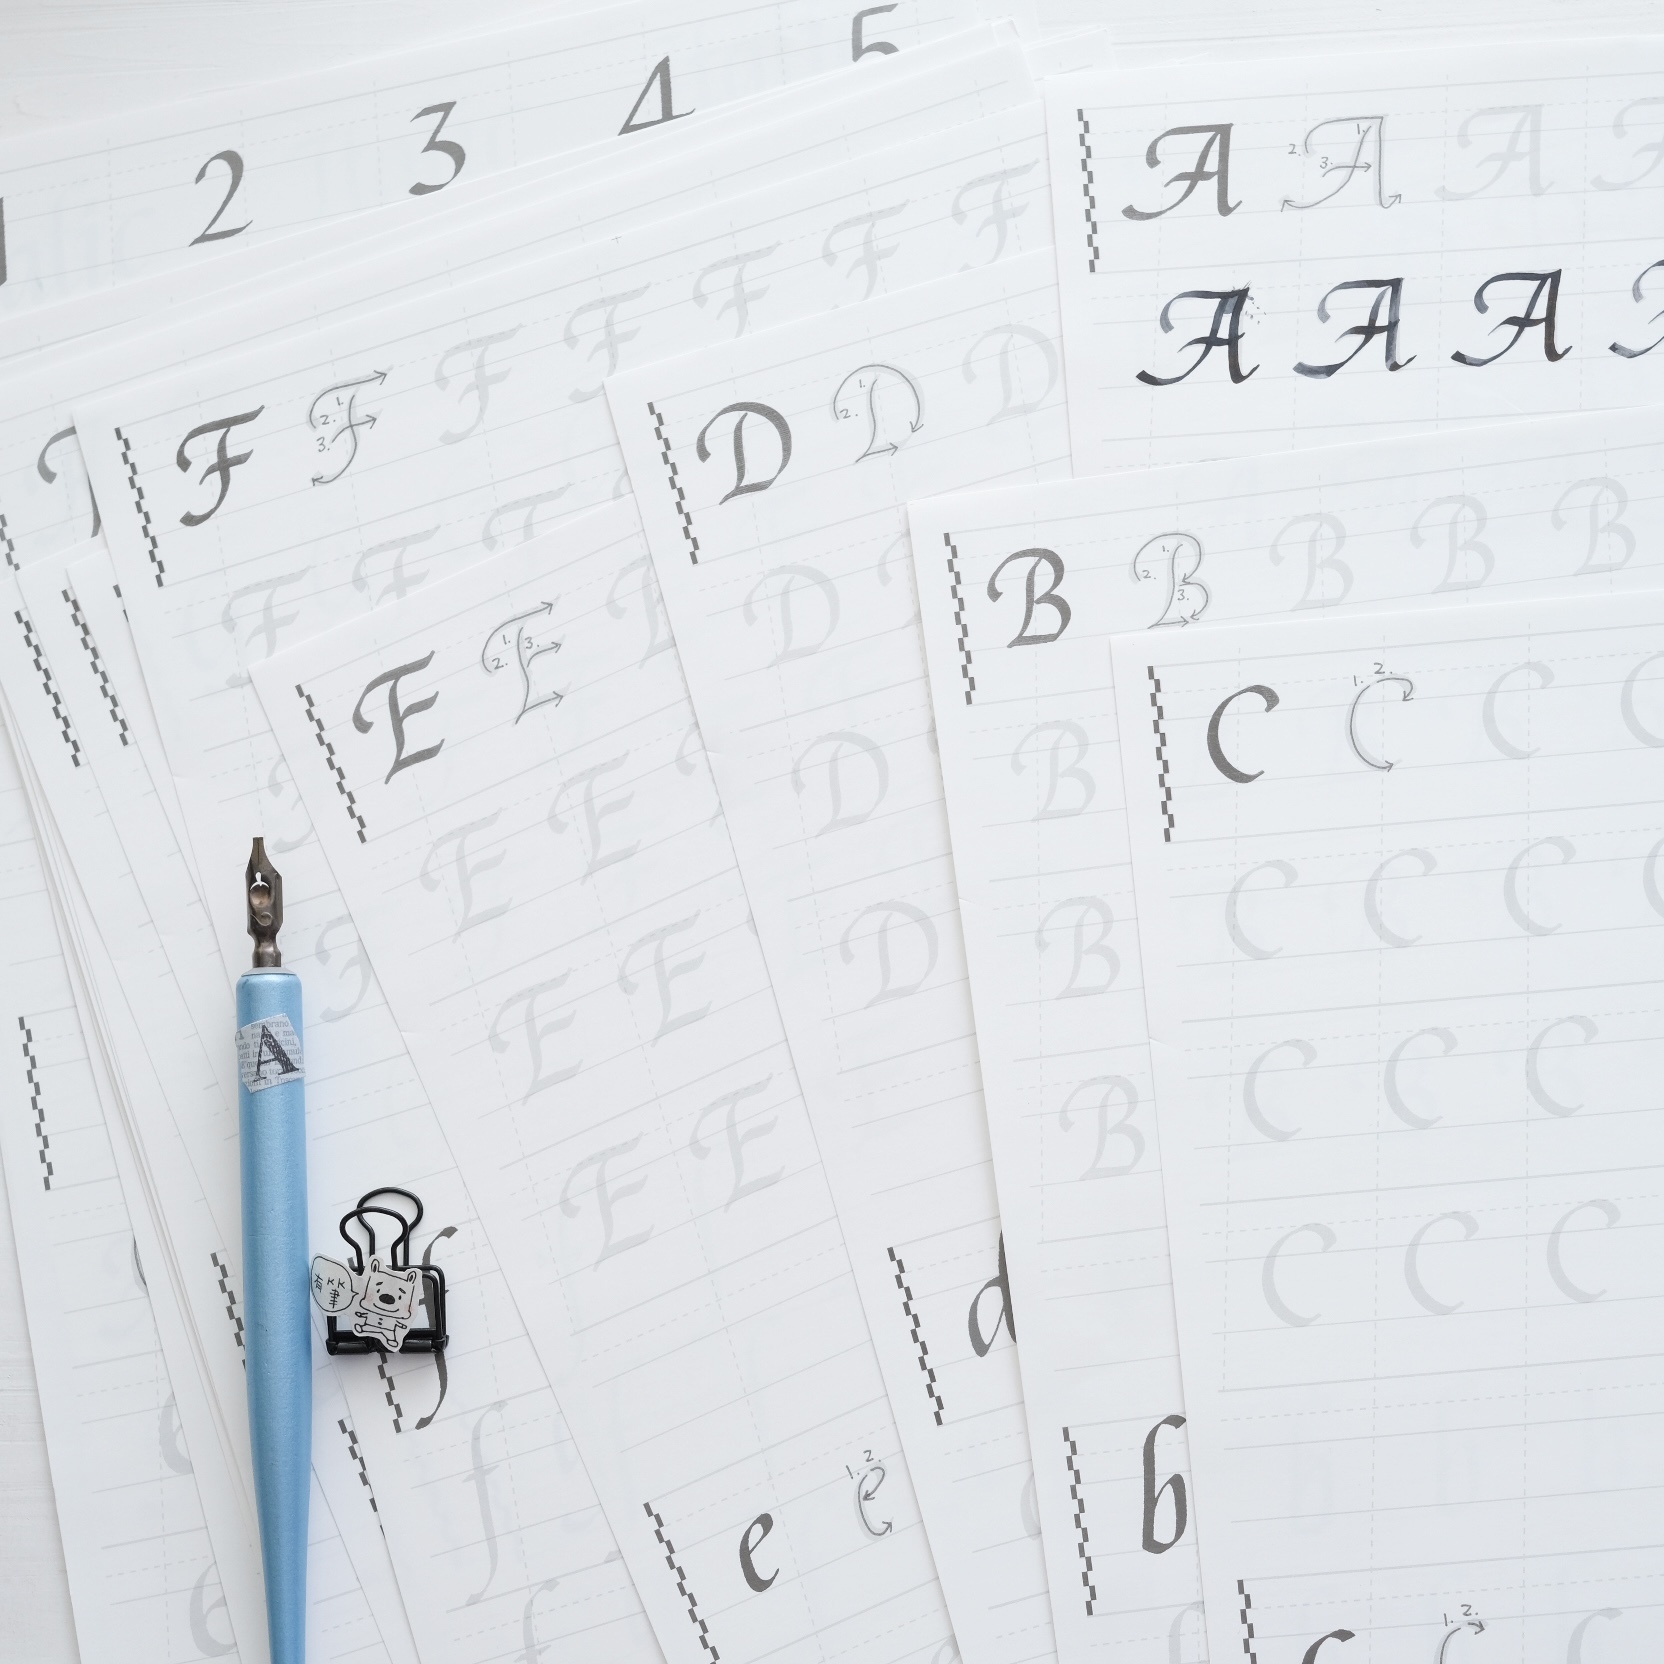 2 3 4 5
A A A A
1. 2. 3.
A A A A
F F F F F F F
1. 2. 3.
F F
D D D
1. 2.
D
D
D
B B B B B
1. 2. 3.
B
B
B
C C C C
1. 2.
C C C C
C C C
C C C
E E E
1. 2. 3.
E E
E E
E E
A
f
f
f
d
b
b
e e
1. 2.
c c c
1. 2.
6
6